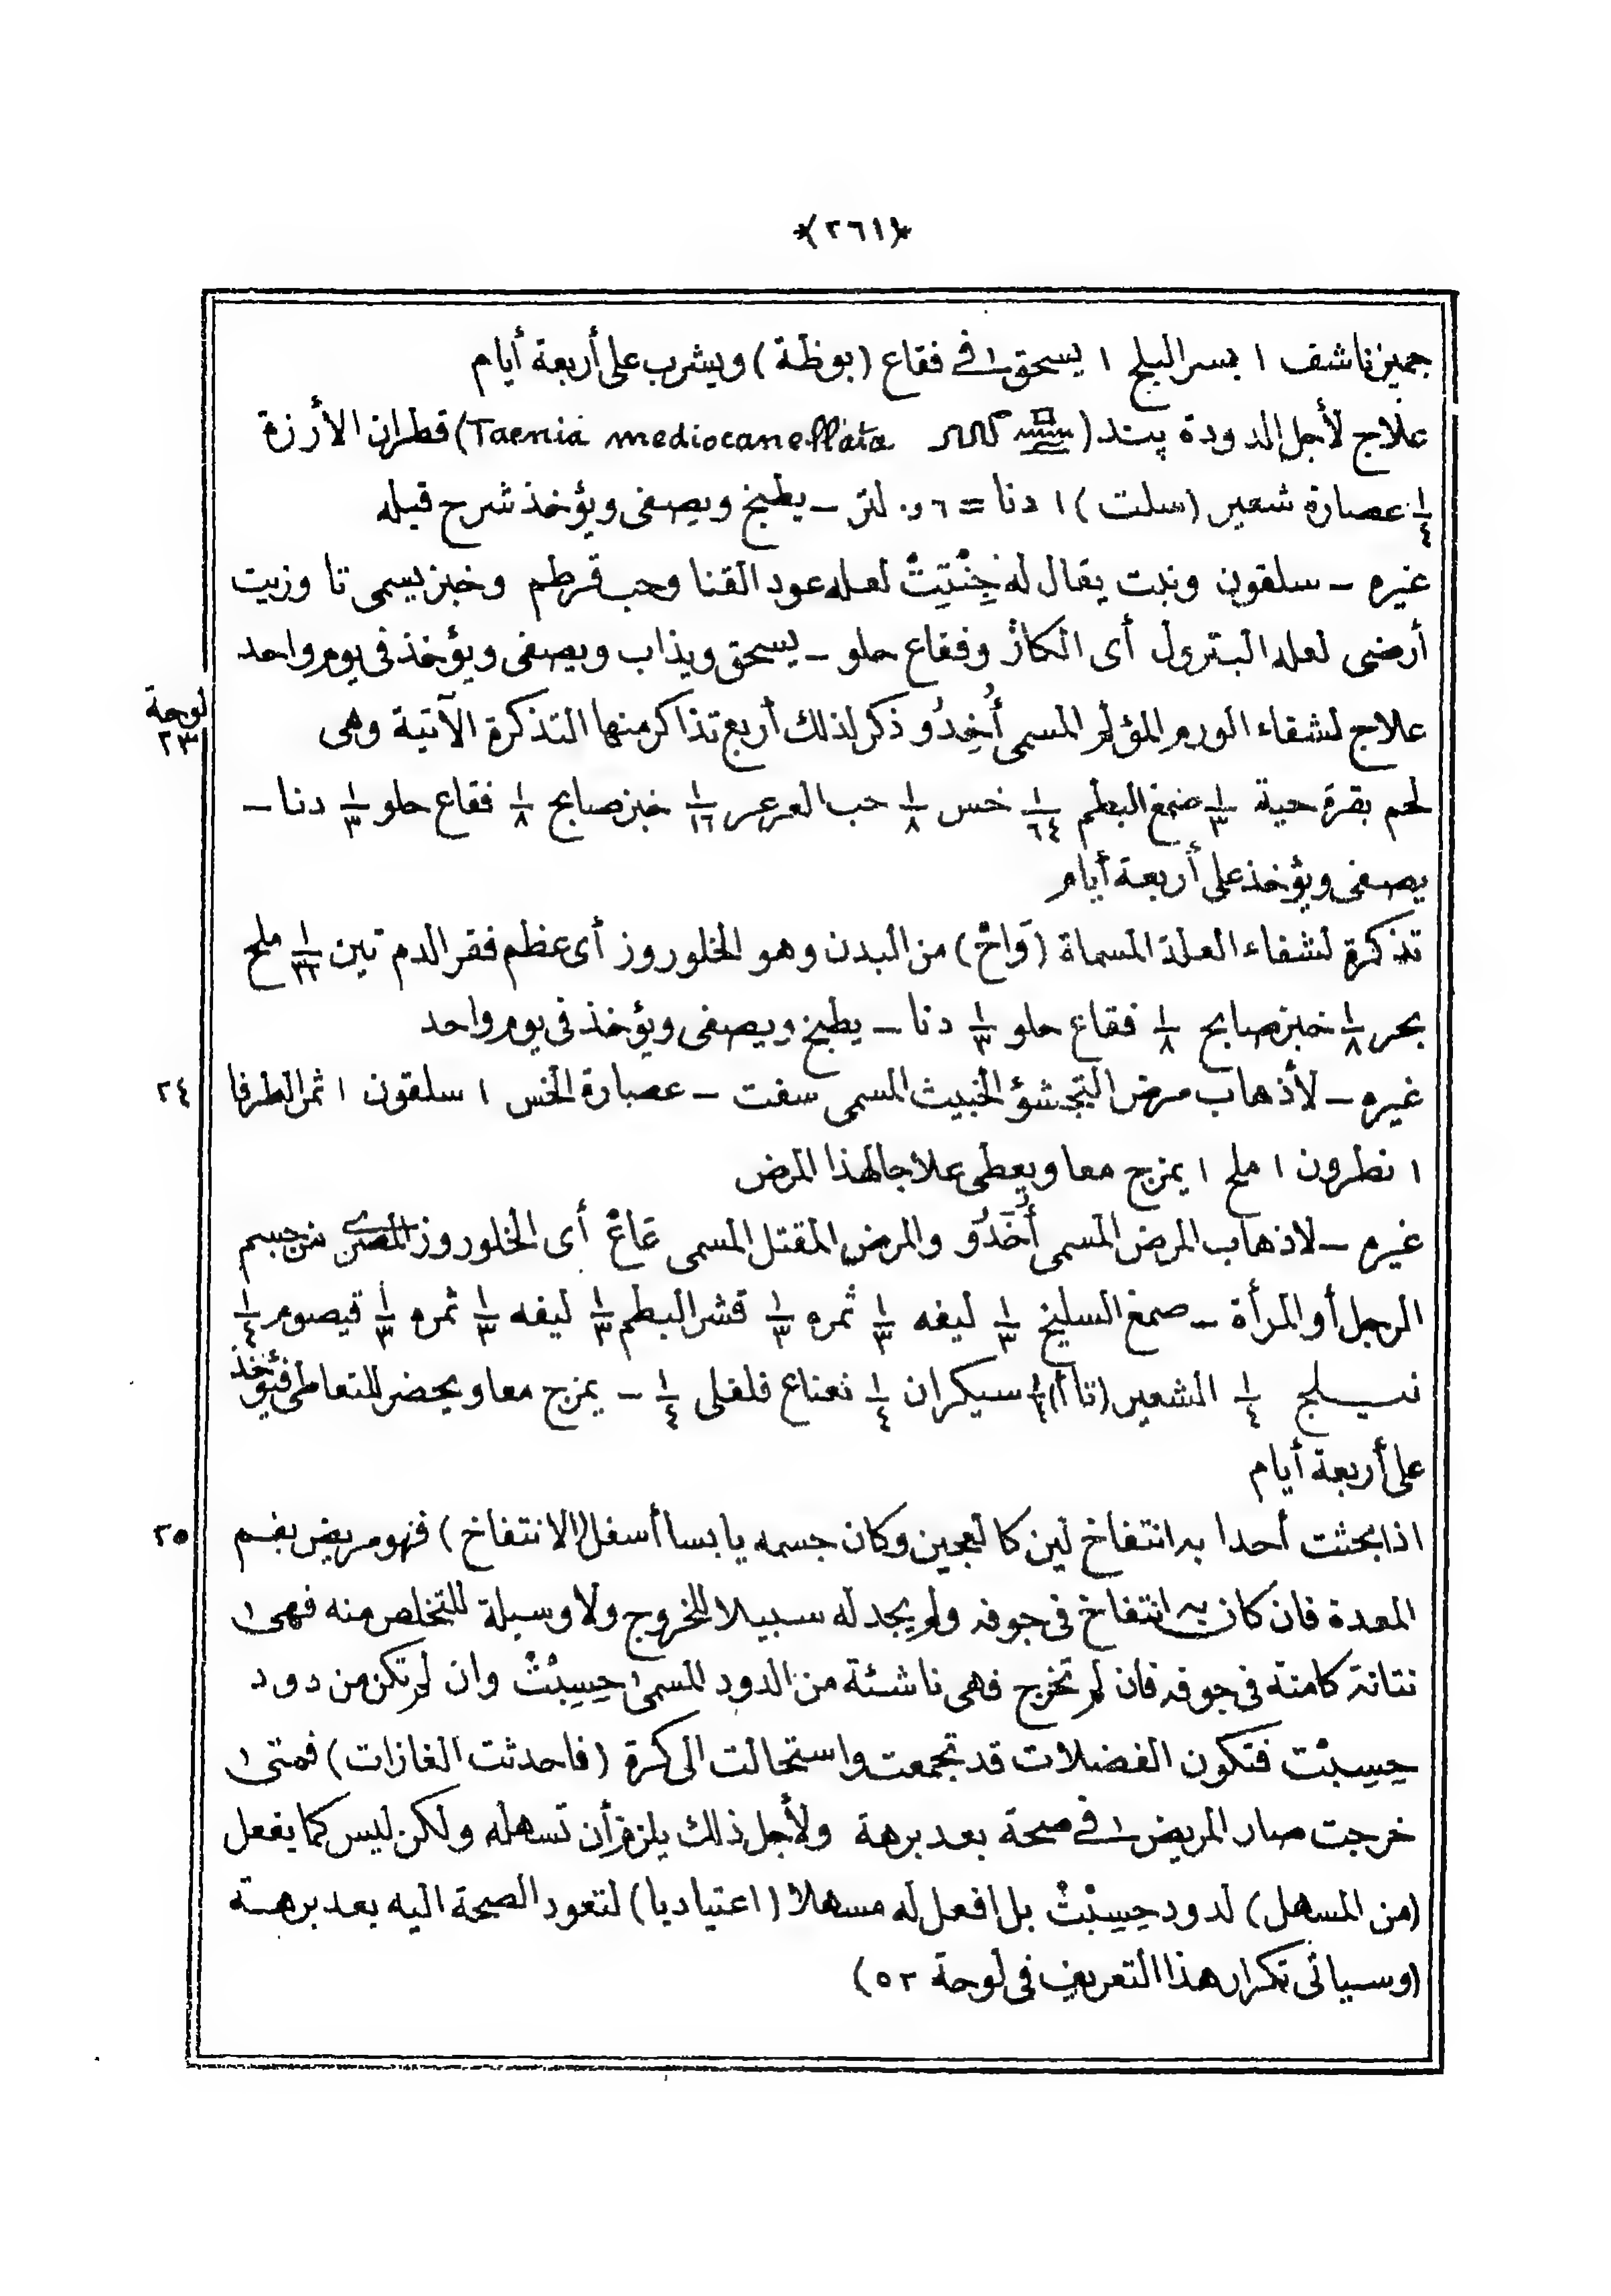 *(٢٦١)*
جميز ناشف ١ بسر البلح ١ يسحق في فقاع (بوظة) ويشرب على أربعة أيام
علاج لأجل الدودة پند (Taenia mediocanellata) قطران الأرزة
١/٤ عصارة شعير (سلت) ١ دنا = ٠,٦ لتر ــ يطبخ ويصفى ويؤخذ شرح قبله
غيره ــ سلقون ونبت يقال له خِنْتِتْ لعله عود القنا وحب قرطم وخبز يسمى تا وزيت
أرضى لعله البترول أى الكاز وفقاع حلو ــ يسحق ويذاب ويصفى ويؤخذ فى يوم واحد
علاج لشفاء الورم المؤلم المسمى أُخِدُو ذكر لذلك أربع تذاكر منها التذكرة الآتية وهى
لوحة ٢٣
لحم بقرة حية ١/٣ صمغ البطم ١/٦٤ خس ١/٨ حب العرعر ١/١٦ خبز صابح ١/٨ فقاع حلو ١/٣ دنا ــ
يصفى ويؤخذ على أربعة أيام
تذكرة لشفاء العلة المسماة (وَاخْ) من البدن وهو الخلوروز أى عظم فقر الدم تين ١/٣٢ ملح
بحر ١/٨ خبز صابح ١/٨ فقاع حلو ١/٣ دنا ــ يطبخ ويصفى ويؤخذ فى يوم واحد
غيره ــ لأذهاب مرض التجشؤ الخبيث المسمى سفت ــ عصارة الخس ١ سلقون ١ ثمر الطرفا
٢٤
١ نطرون ١ ملح ١ يمزج معا ويعطى علاجا لهذا المرض
غيره ــ لاذهاب المرض المسمى أُخَدُو والمرض المقتل المسمى عَاعْ أى الخلوروز المصرى من جسم
الرجل أو المرأة ــ صمغ السليخ ١/٣ ليفه ١/٣ ثمره ١/٣ قشر البطم ١/٣ ليفه ١/٣ ثمره ١/٣ قيصوم ١/٤
نيلج ١/٤ الشعير (تاأ) ١/٤ سيكران ١/٤ نعناع فلفلى ١/٤ ــ يمزج معا ويحضر للتعاطى فيؤخذ
على أربعة أيام
اذا بحثت أحدا به انتفاخ لين كالعجين وكان جسمه يابسا أسفل (الانتفاخ) فهو مريض بفم
٢٥
المعدة فان كان به انتفاخ فى جوفه ولم يجد له سبيلا للخروج ولا وسيلة للتخلص منه فهى
نتانة كامنة فى جوفه فان لم تخرج فهى ناشئة من الدود المسمى حِسِبْتْ وان لم تكن من دود
حِسِبْت فتكون الفضلات قد تجمعت واستحالت الى كرة (فاحدثت الغازات) فمتى
خرجت صار المريض في صحة بعد برهة ولأجل ذلك يلزم أن تسهله ولكن ليس كما يفعل
(من المسهل) لدود حِسِبْتْ بل افعل له مسهلا (اعتياديا) لتعود الصحة اليه بعد برهة
(وسيأتى تكرار هذا التعريف فى لوحة ٥٢)